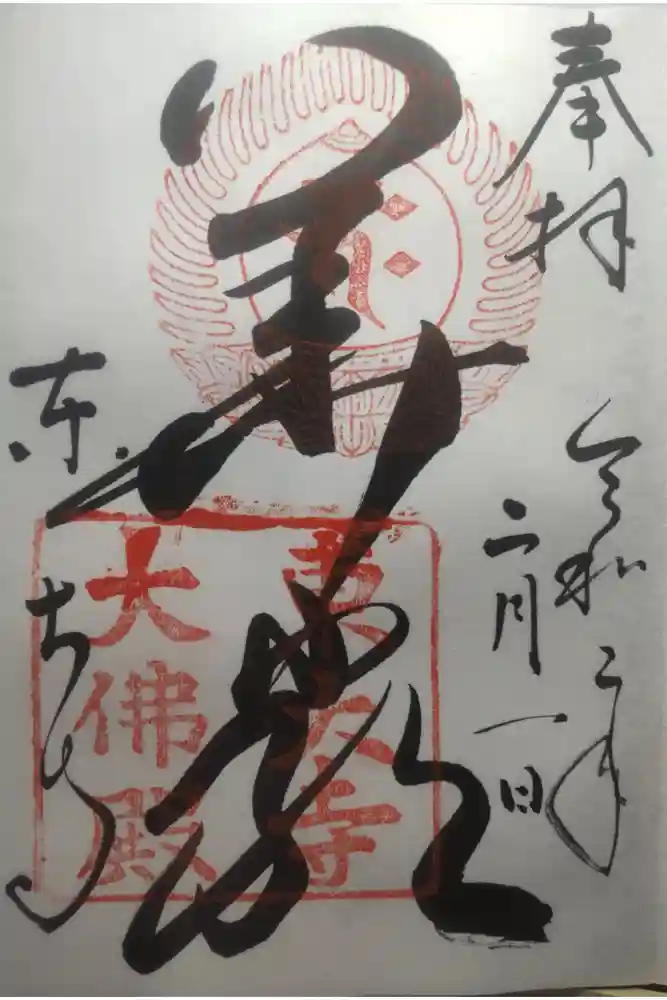 奉拝
令和二年
二月一日
華嚴
東大寺
東大寺
大佛殿